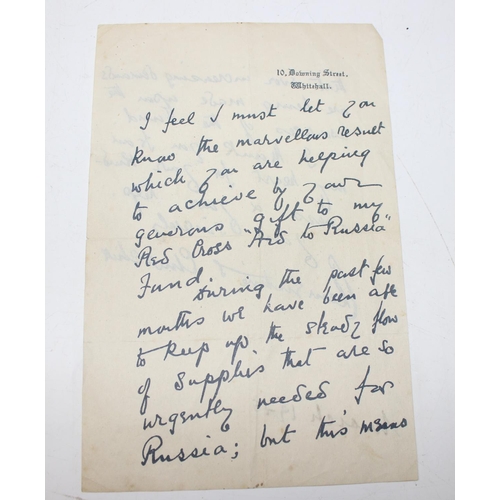 10, Downing Street,
Whitehall.
I feel I must let you
know the marvellous result
which you are helping
to achieve by your
generous gift to my
Red Cross "Aid to Russia"
Fund.
During the past few
months we have been able
to keep up the steady flow
of supplies that are so
urgently needed for
Russia; but this means